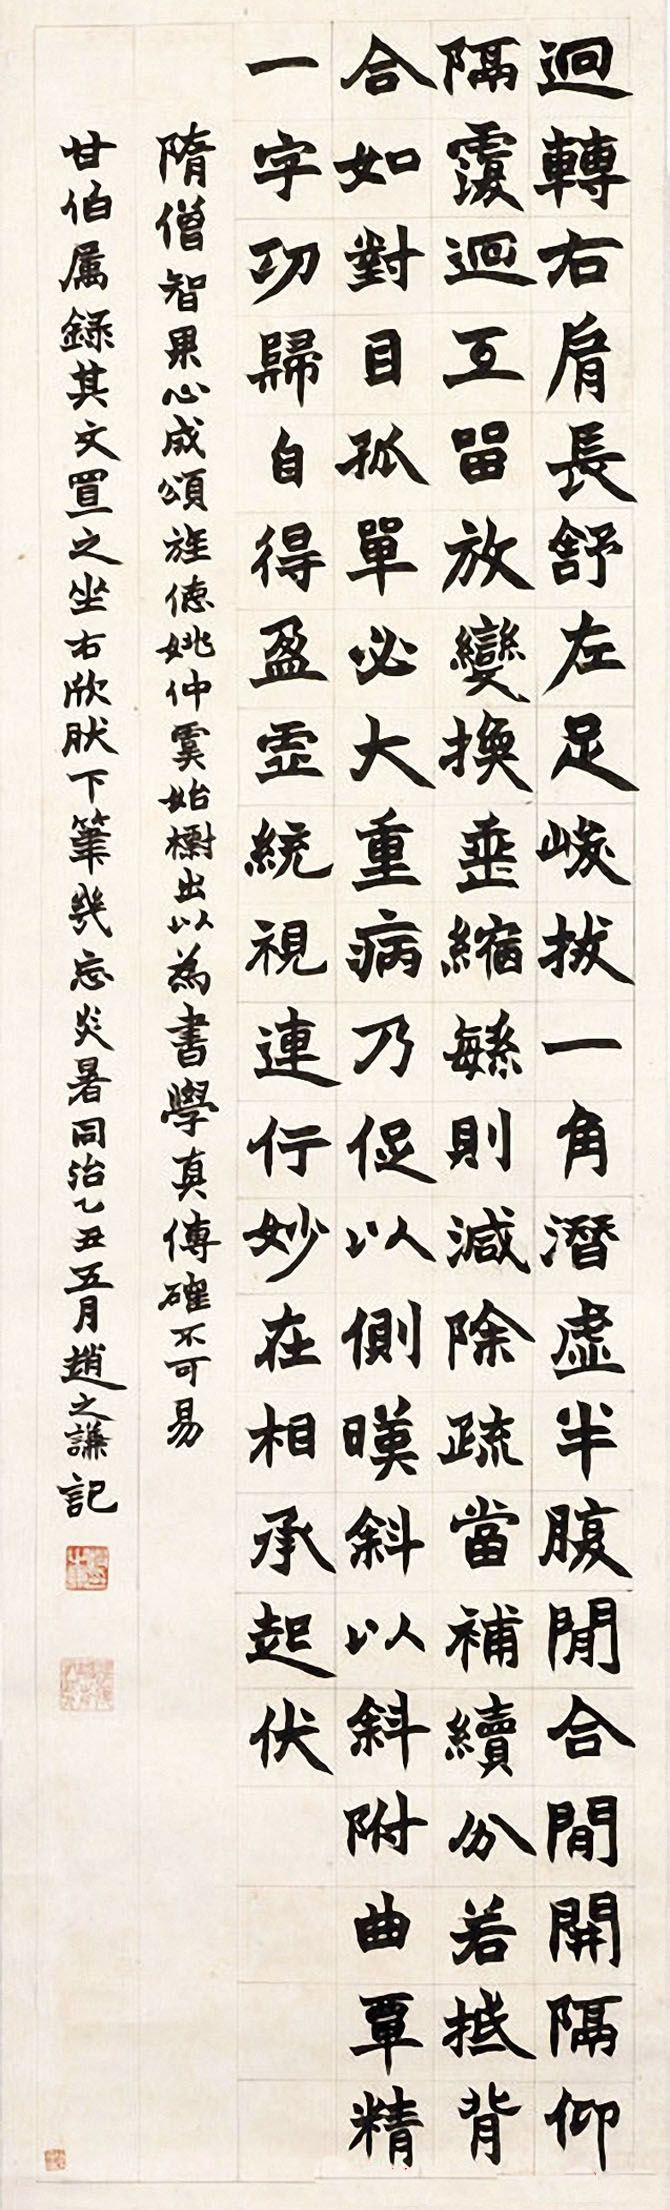 迴轉右肩長舒左足峻拔一角潛虛半腹閒合閒開隔仰
隔覆迴互留放變換垂縮繁則減除疏當補續分若抵背
合如對目孤單必大重病乃促以側暎斜以斜附曲覃精
一字功歸自得盈虛統視連行妙在相承起伏
隋僧智果心成頌旌德姚仲虞始櫥出以為書學真傳確不可易
甘伯屬錄其文置之坐右欣肰下筆幾忘炎暑同治乙丑五月趙之謙記